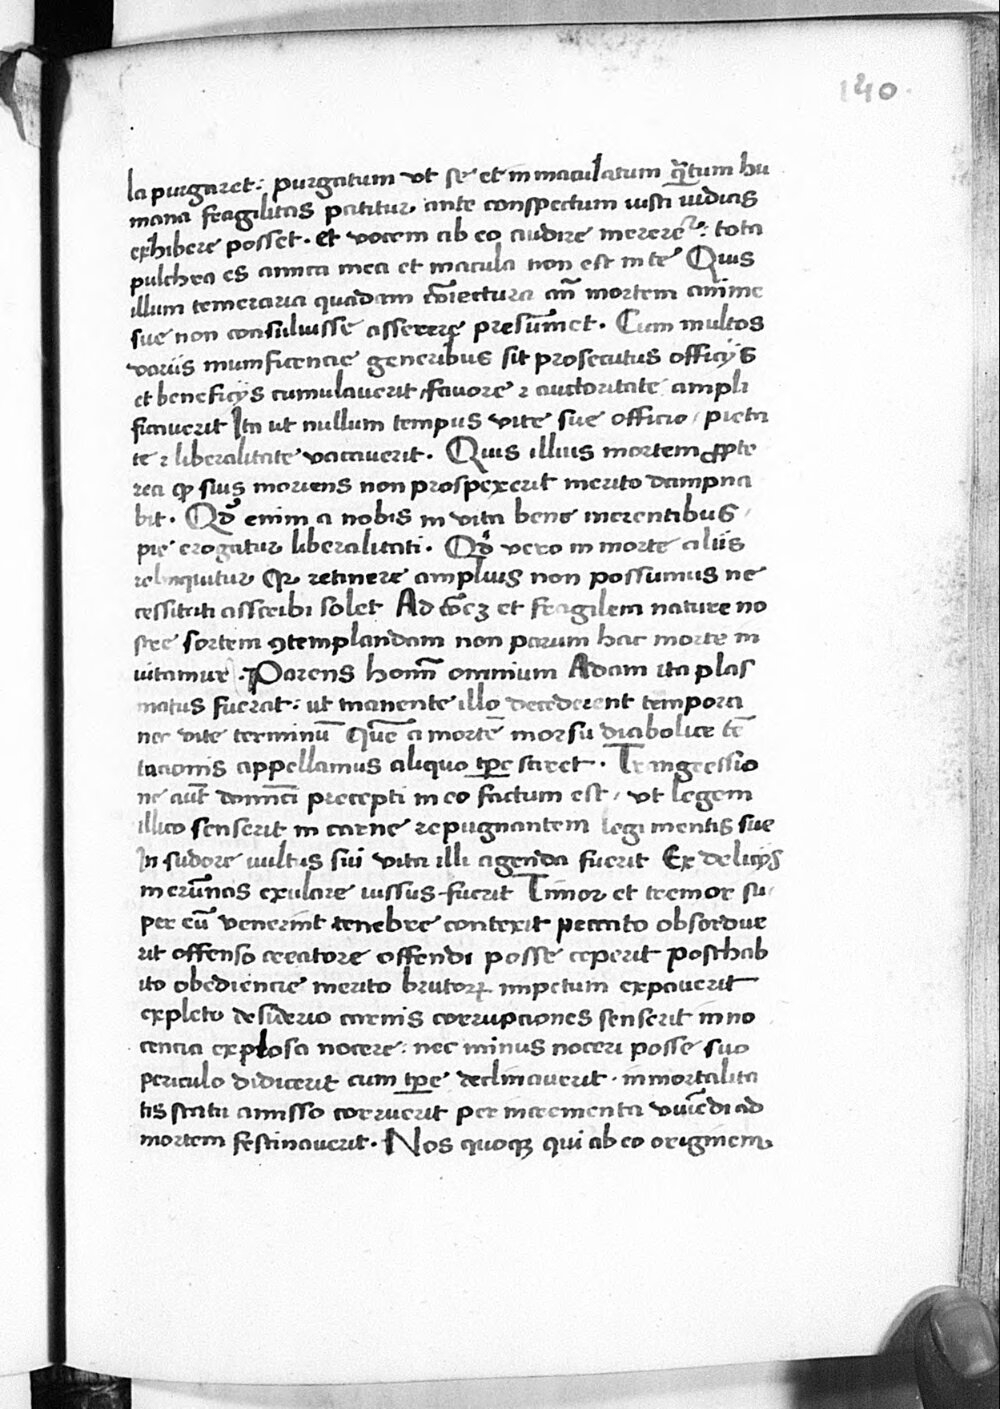 140.
la purgaret: purgatum ut se et inmaculatum q̃tum hu
mana fragilitas patitur, ante conspectum iusti iudicis
exhibere posset. et vocem ab eo audire mereret᷑: tota
pulchra es amica mea et macula non est in te Quis
illum temeraria quadam cõiectura añ mortem anime
sue non consuluisse asserere presũmet. Cum multos
variis munificencie generibus sit prosecutus officijs
et beneficijs cumulauerit, fauore ⁊ auctoritate ampli
ficauerit Ita ut nullum tempus vite sue officio, pieta
te ⁊ liberalitate vacauerit. Quis illius mortem ꝓpte
rea ꝙ suis moriens non prospexerit merito dampna
bit. Qđ enim a nobis in vita bene merentibus,
pie erogatur liberalitati. Qđ vero in morte aliis
relinquitur qꝛ retinere amplius non possumus ne
cessitati asscribi solet Ad cõeʒ et fragilem nature no
stre sortem ꝯtemplandam non parum hac morte in
uitamur. Parens hoım̃ omnium Adam ita plas
matus fuerat: ut manente illo decederent tempora
nec vite terminũ quẽ a morte morsu diabolice tẽ
tacionis appellamus aliquo tp̱e sciret. Transgressio
ne aut̃ dominici precepti in eo factum est, ut legem
illico senserit in carne repugnantem legi mentis sue
In sudore uultus sui vita illi agenda fuerit Ex delicijs
in erũnas exulare iussus fuerit Timor et tremor su
per eũ venerint tenebre contexit peccato obsordue
rit offenso creatore offendi posse ceperit posthab
ito obediencie merito brutorꝝ impetum expauerit
expleto desiderio carnis corrupciones senserit inno
cencia explosa nocere: nec minus noceri posse suo
periculo didicerit cum tp̱e declinauerit. inmortalita
tis statu amisso corruerit per incrementa viuẽdi ad
mortem festinauerit. Nos quoqꝫ qui ab eo originem